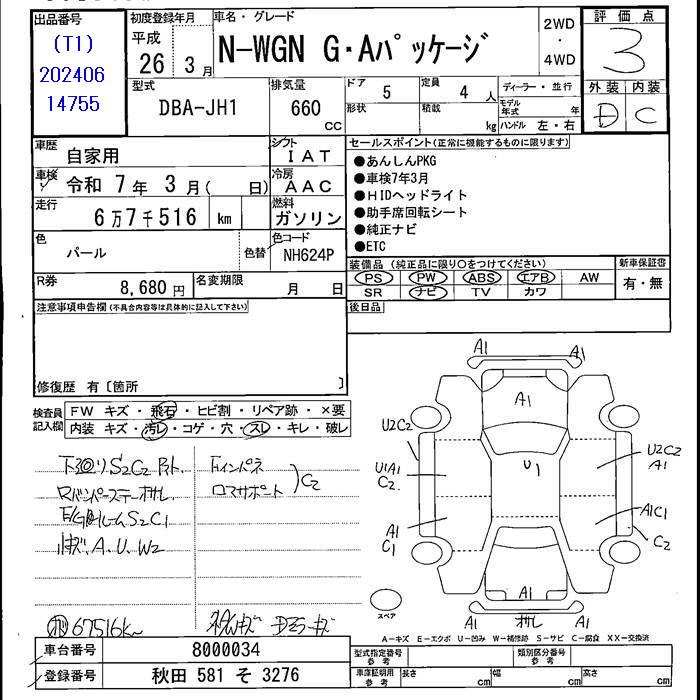 出品番号
(T1)
202406
14755
初度登録年月
平成
26年 3月
車名・グレード
N-WGN G・Aパッケージ
2WD
・
4WD
評価点
3
外装 内装
D C
型式
DBA-JH1
排気量
660
CC
ドア 5
定員 4人
形状
積載 kg
ディーラー・並行
モデル年式 年
ハンドル 左・右
車歴 自家用
シフト IAT
車検 令和 7年 3月( 日)
冷房 AAC
走行 6万7千516 km
燃料 ガソリン
色 パール
色替
色コード NH624P
R券 8,680円
名変期限 月 日
セールスポイント(正常に機能するものに限ります)
●あんしんPKG
●車検7年3月
●HIDヘッドライト
●助手席回転シート
●純正ナビ
●ETC
装備品 (純正品に限り〇をつけてください)
PS PW ABS エアB AW
SR ナビ TV カワ
新車保証書
有・無
後日品
注意事項申告欄(不具合内容等は具体的に記入して下さい)
修復歴 有〔箇所 〕
検査員記入欄
FW キズ・飛石・ヒビ割・リペア跡・×要
内装 キズ・汚レ・コゲ・穴・スレ・キレ・破レ
S2C2
Rバンパーステー
S2C1
小キズ.A.U.W2
インパネ
C2
67516k
A1
A1
A1
U2C2
U1A1
C2
U1
U2C2
A1
A1
C1
A1C1
C2
A1
A1
A1
スペア
A-キズ E-エクボ U-凹み W-補修跡 S-サビ C-腐食 XX-交換済
車台番号 8000034
登録番号 秋田 581 そ 3276
型式指定番号
参考
類別区分番号
参考
車庫証明用
参考
長さ cm
幅 cm
高さ cm